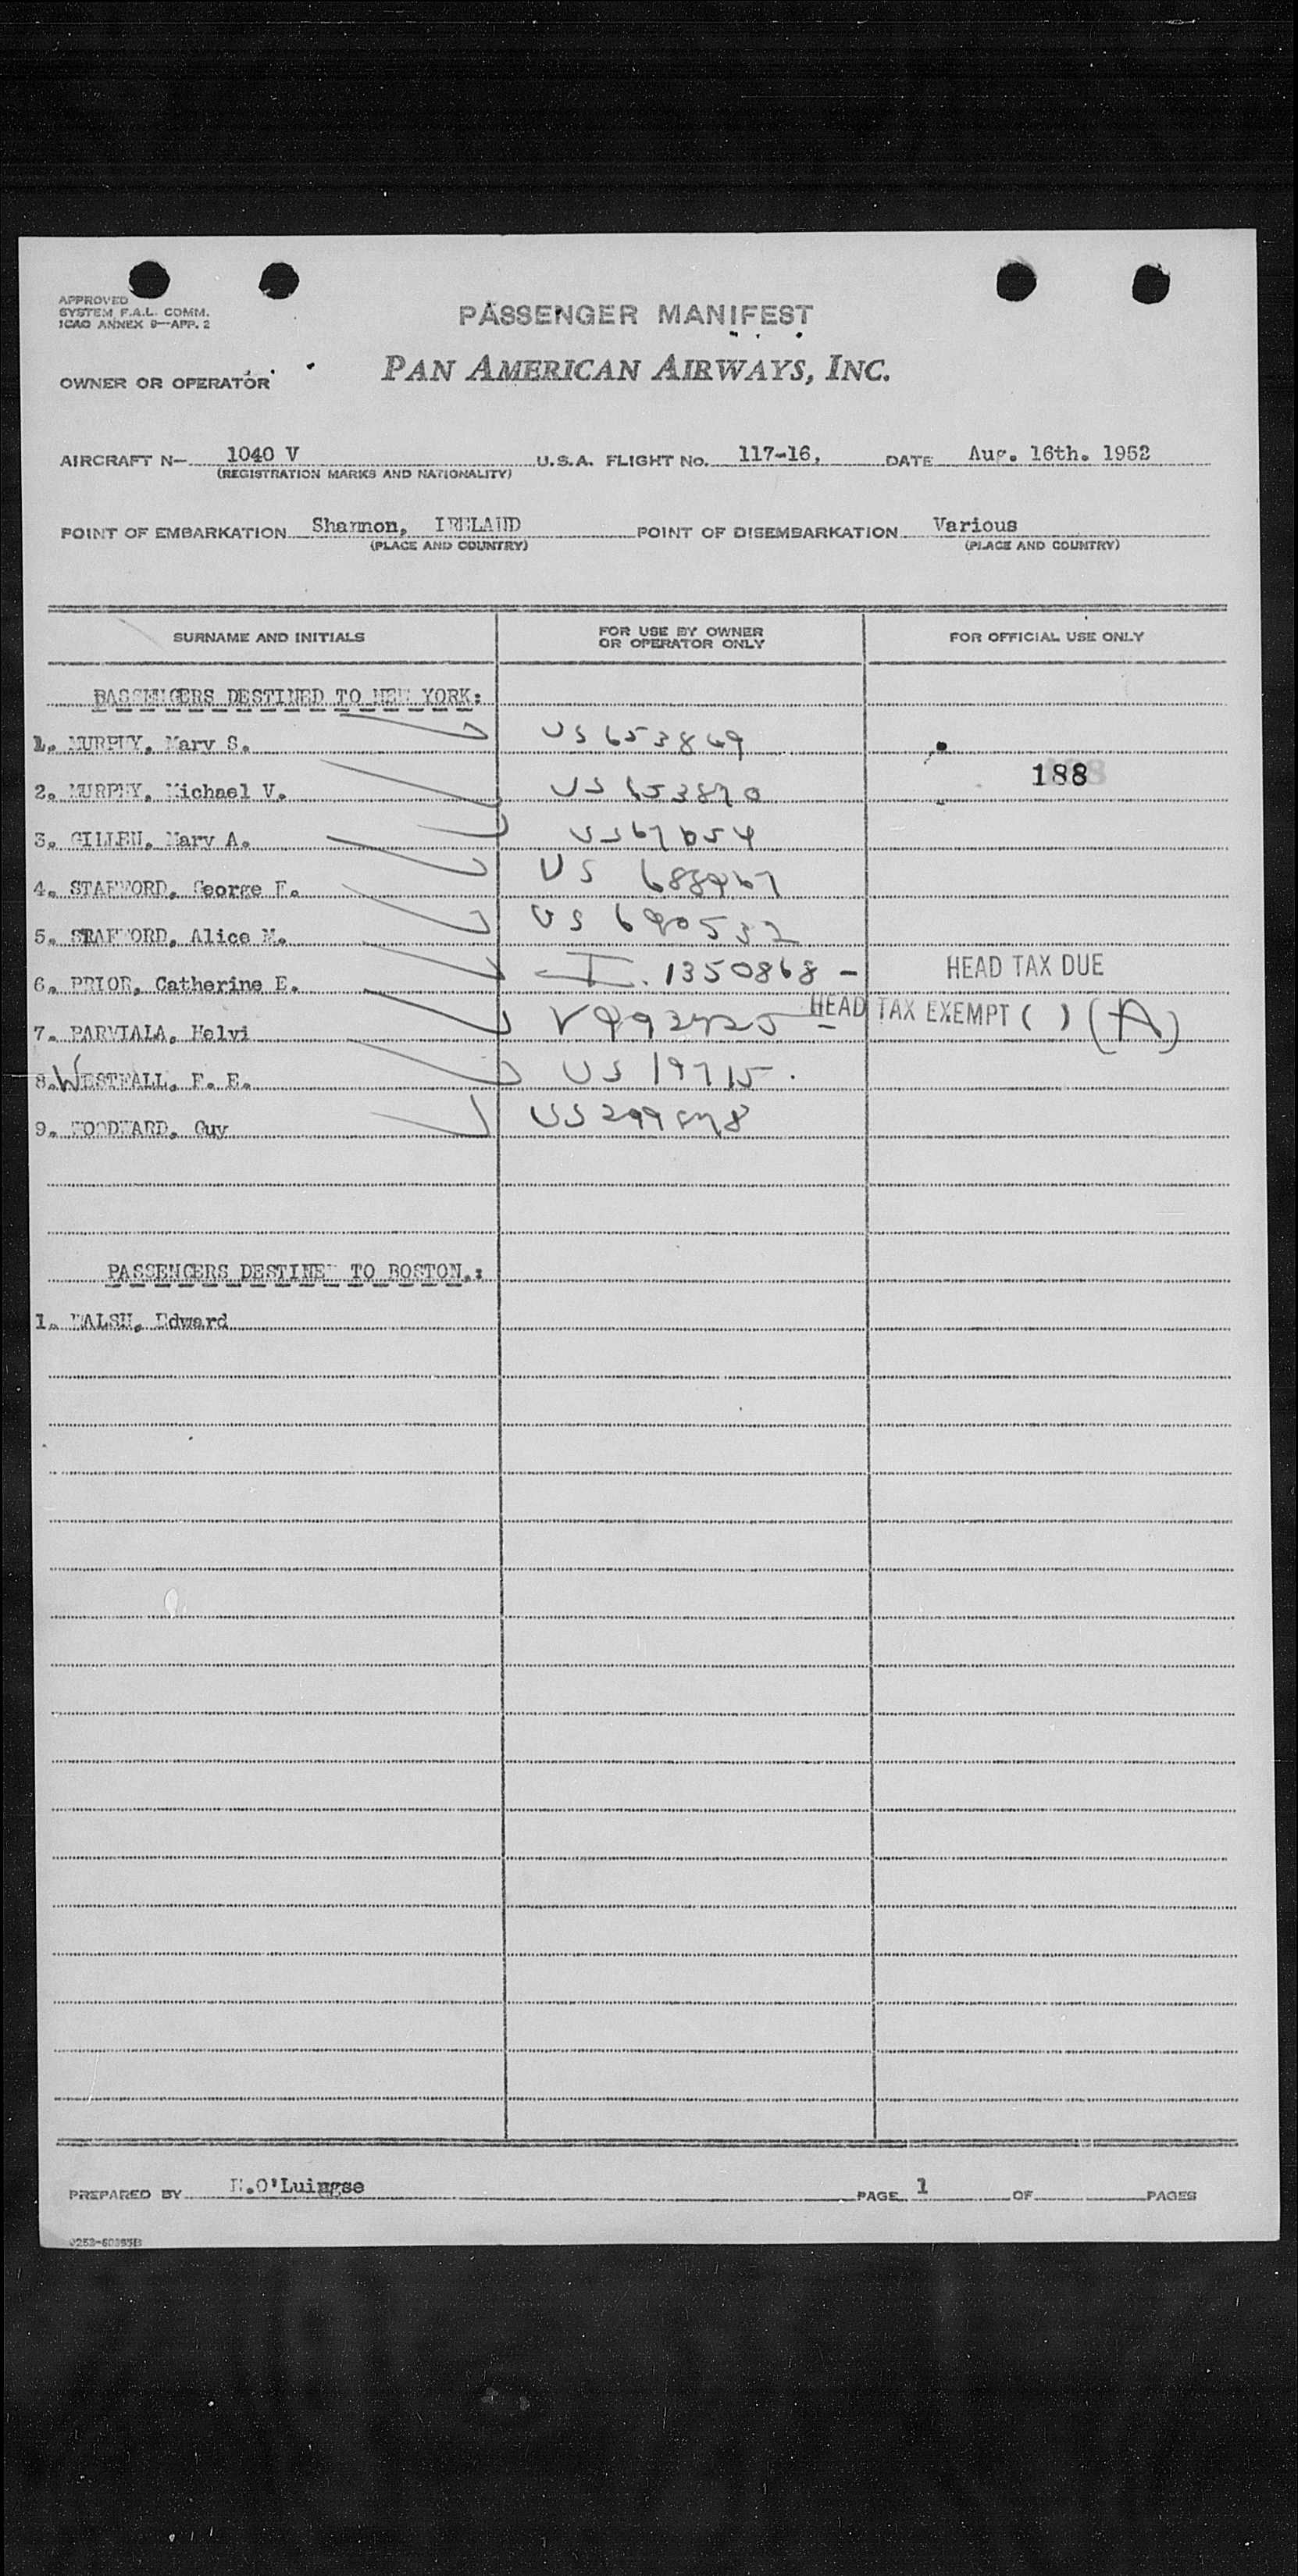 APPROVED
SYSTEM F.A.L. COMM.
ICAO ANNEX 9—APP. 2
PASSENGER MANIFEST
OWNER OR OPERATOR PAN AMERICAN AIRWAYS, INC.
AIRCRAFT N— 1040 V U.S.A. FLIGHT No. 117-16, DATE Aug. 16th. 1952
(REGISTRATION MARKS AND NATIONALITY)
POINT OF EMBARKATION Shannon, IRELAND POINT OF DISEMBARKATION Various
(PLACE AND COUNTRY) (PLACE AND COUNTRY)
SURNAME AND INITIALS FOR USE BY OWNER OR OPERATOR ONLY FOR OFFICIAL USE ONLY
PASSENGERS DESTINED TO NEW YORK:
1. MURPHY, Mary S. US 653869
2. MURPHY, Michael V. US 653870 188
3. GILLEN, Mary A. US
4. STAFFORD, George F. US
5. STAFFORD, Alice M. US 690532
6. PRIOR, Catherine E. I. 1350868 – HEAD TAX DUE
7. PARVIALA, Helvi HEAD TAX EXEMPT ( ) (A)
8. WESTFALL, F. E. US 19715.
9. WOODWARD, Guy
PASSENGERS DESTINED TO BOSTON.:
1. WALSH, Edward
PREPARED BY O'Luingse PAGE 1 OF PAGES